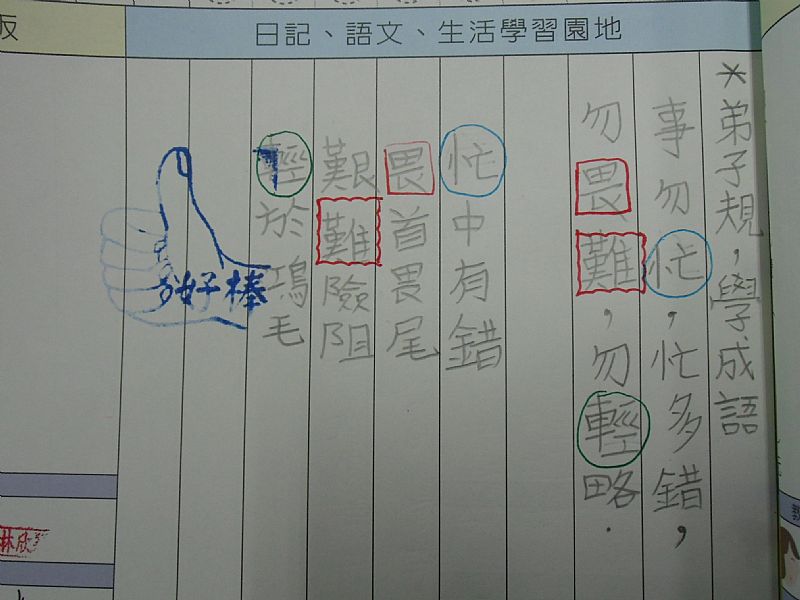 日記、語文、生活學習園地
*弟子規，學成語
事勿忙，忙多錯，
勿畏難，勿輕略.
忙中有錯
畏首畏尾
艱難險阻
輕於鴻毛
好棒
林欣